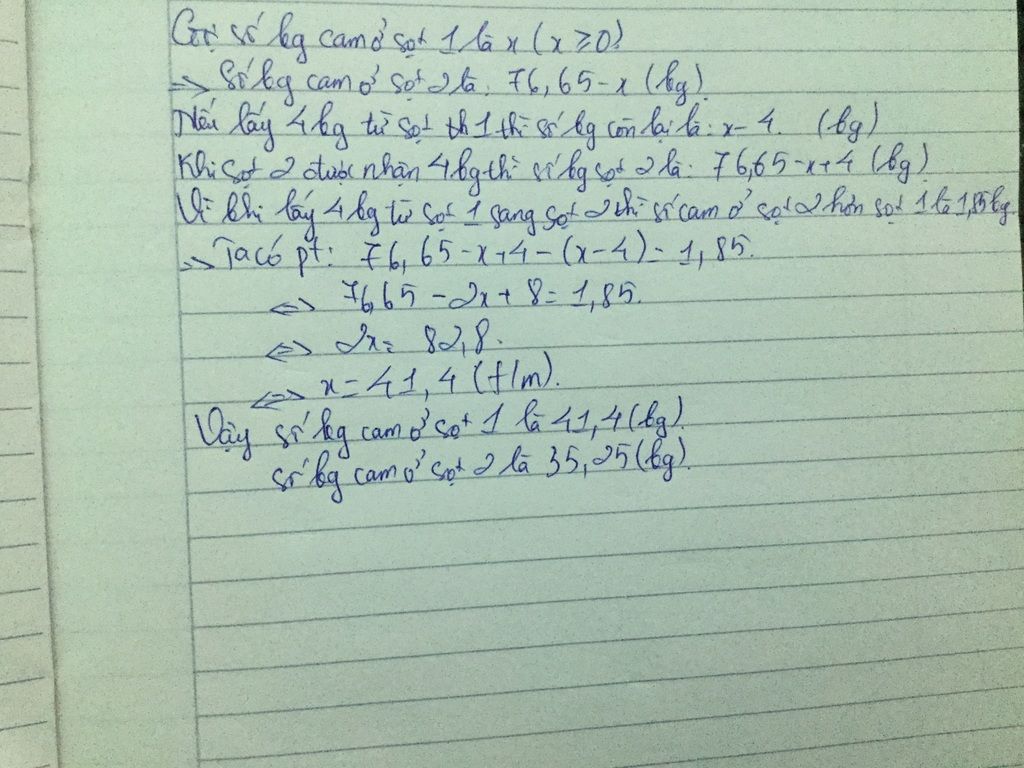 Gọi số kg cam ở sọt 1 là x (x ≥ 0)
=> Số kg cam ở sọt 2 là: 76,65 - x (kg)
Nếu lấy 4 kg từ sọt th 1 thì số kg còn lại là: x - 4. (kg)
Khi sọt 2 được nhận 4 kg thì số kg sọt 2 là: 76,65 - x + 4 (kg)
Vì khi lấy 4 kg từ sọt 1 sang sọt 2 thì số cam ở sọt 2 hơn sọt 1 là 1,85 kg
=> Ta có pt: 76,65 - x + 4 - (x - 4) = 1,85.
<=> 76,65 - 2x + 8 = 1,85.
<=> 2x = 82,8.
<=> x = 41,4 (t/m).
Vậy số kg cam ở sọt 1 là 41,4 (kg)
số kg cam ở sọt 2 là 35,25 (kg).